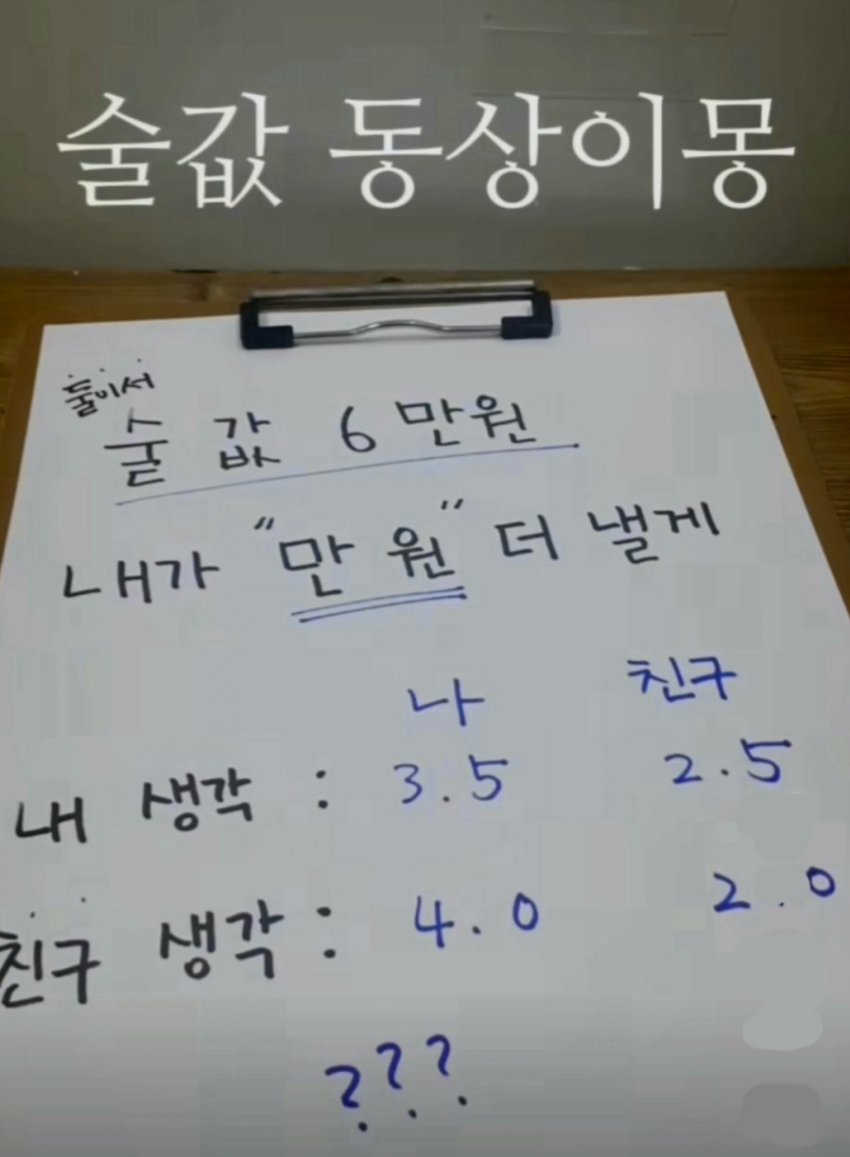 술값 동상이몽
둘이서
술값 6만원
내가 "만원" 더 낼게
나 친구
내 생각 : 3.5 2.5
친구 생각 : 4.0 2.0
???